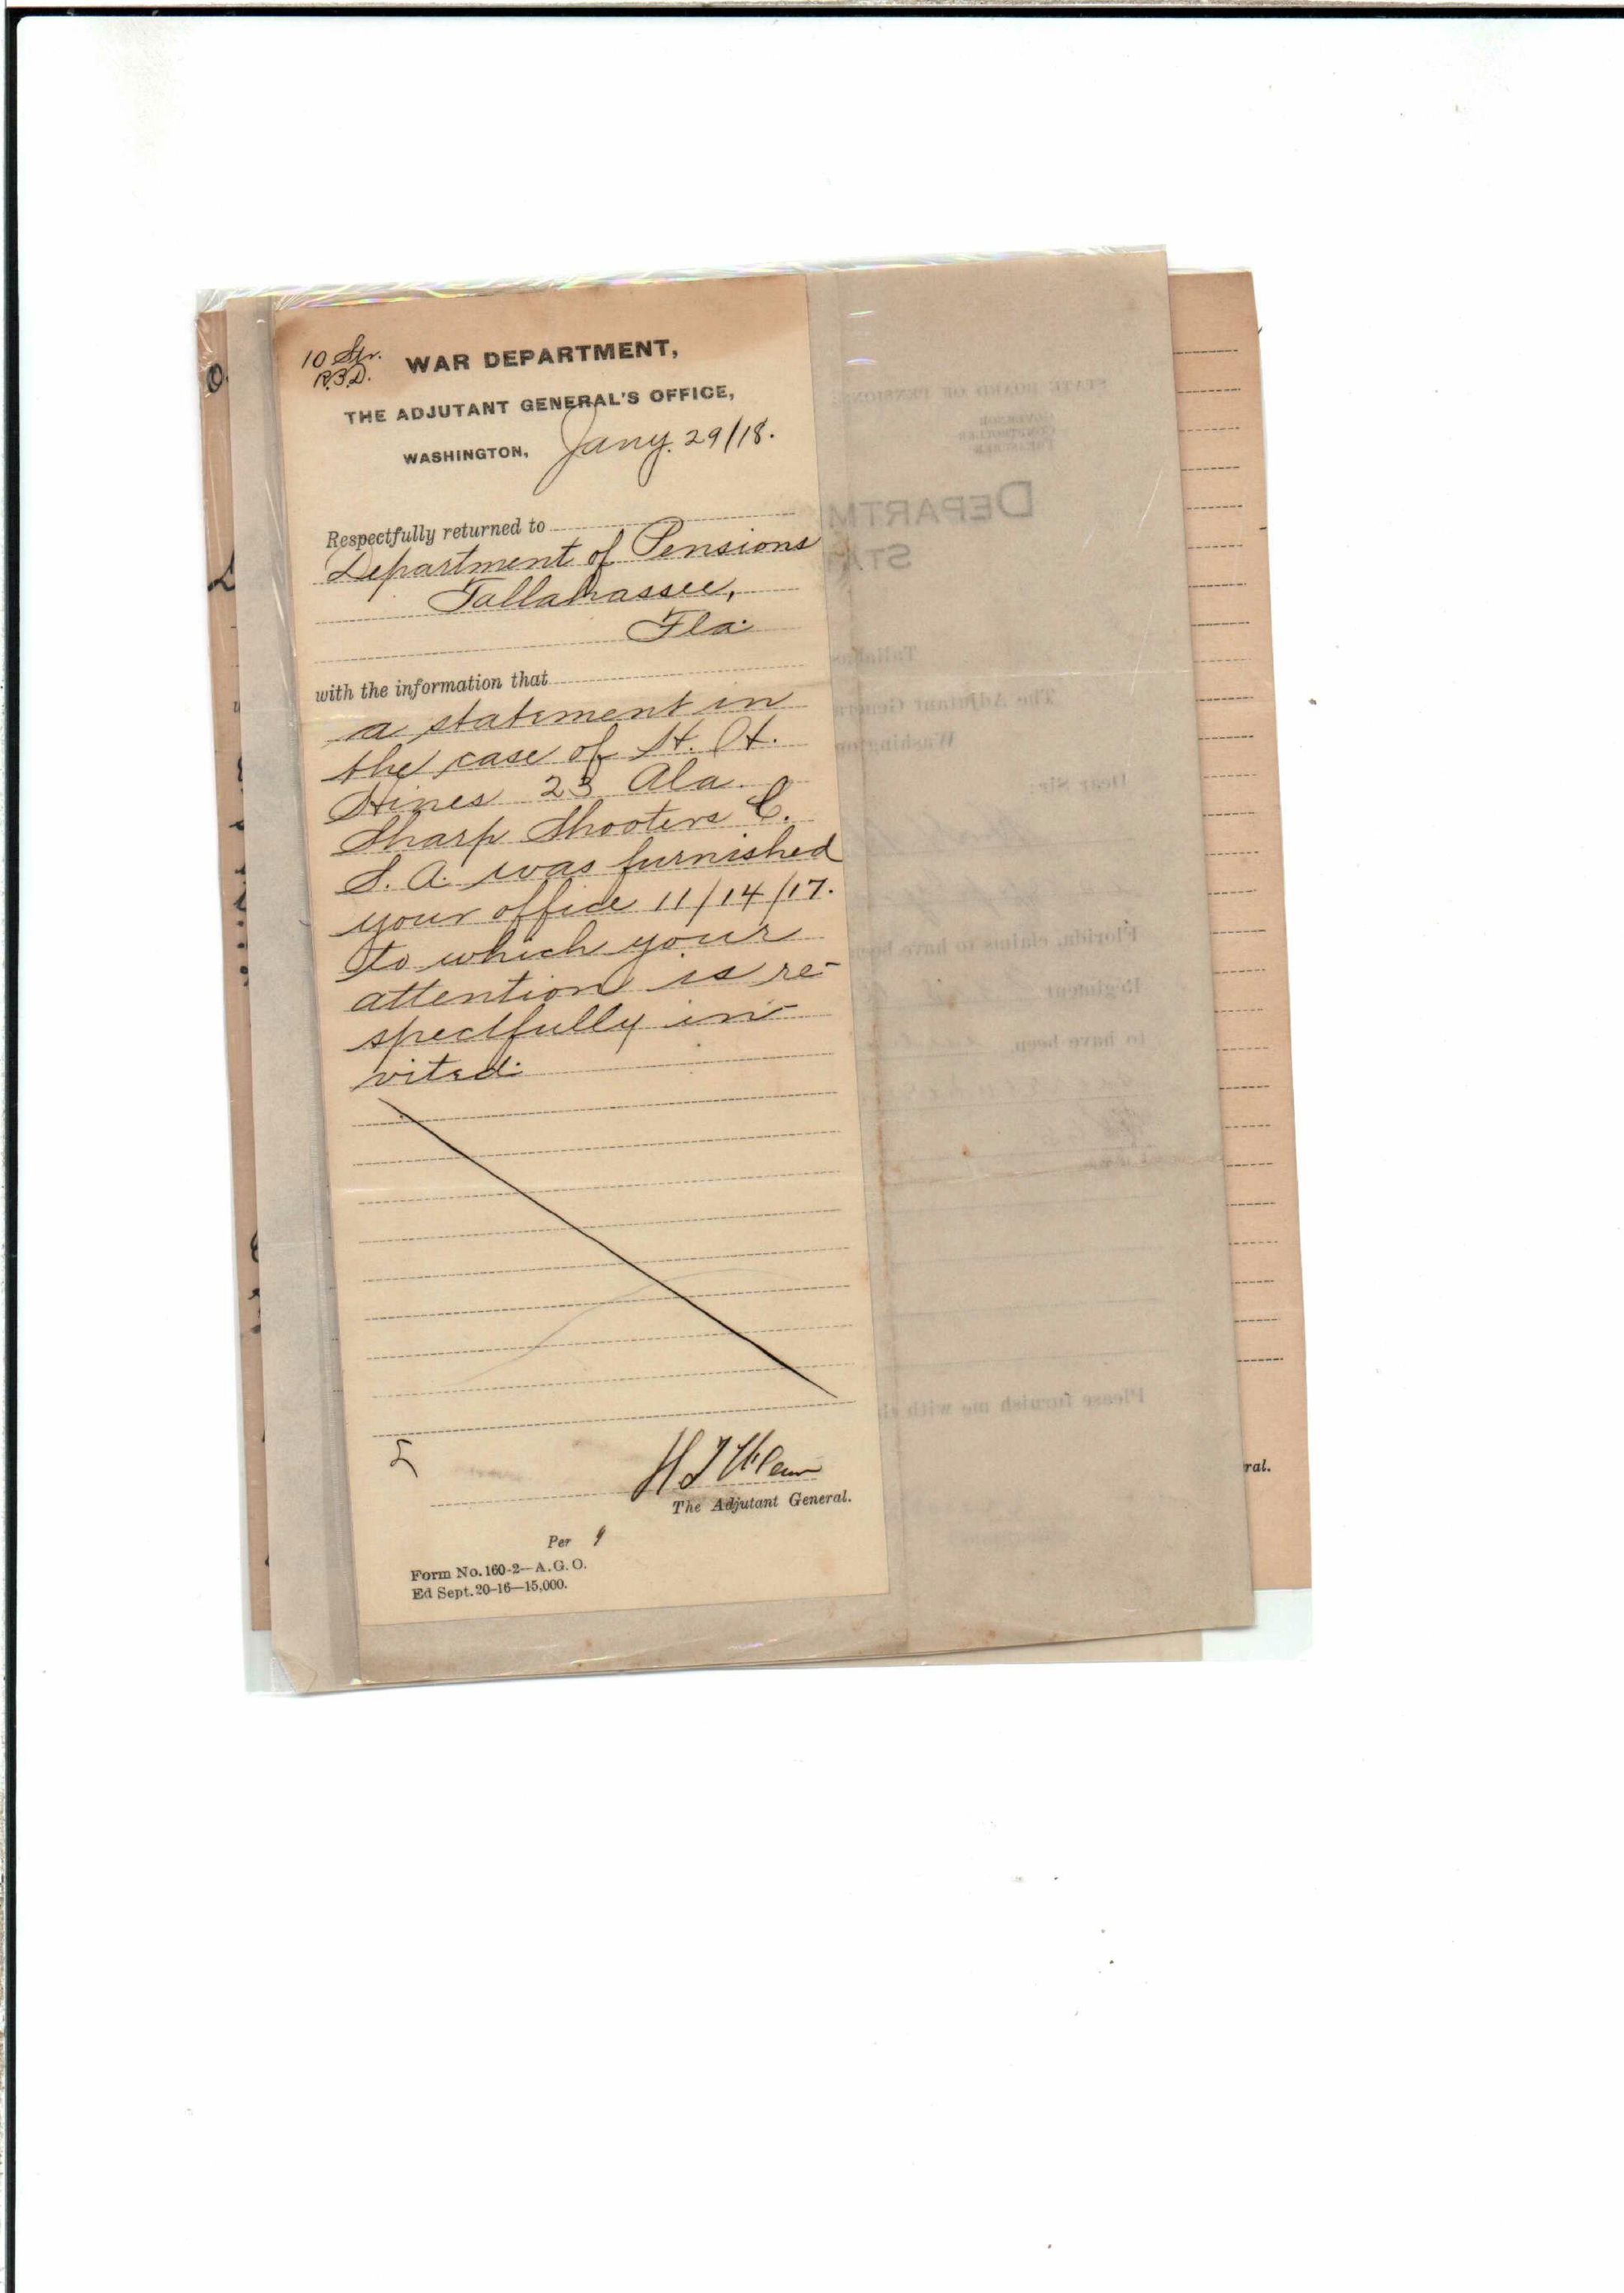 10 Str.
R.B.D.
WAR DEPARTMENT,
THE ADJUTANT GENERAL'S OFFICE,
WASHINGTON, Jany. 29/18.
Respectfully returned to
Department of Pensions
Tallahassee,
Fla.
with the information that
a statement in
the case of H. H.
Hines 23 Ala.
Sharp Shooters C.
S. A. was furnished
your office 11/14/17.
to which your
attention is re-
spectfully in-
vited.
The Adjutant General.
Per
Form No. 160-2—A.G.O.
Ed Sept. 20-16—15,000.
STATE BOARD OF PENSIONS
GOVERNOR
COMPTROLLER
TREASURER
DEPARTM
STAT
Tallahas
The Adjutant Genera
Washington
Dear Sir:
Florida, claims to have been
Regiment
to have been
Please furnish me with
ral.